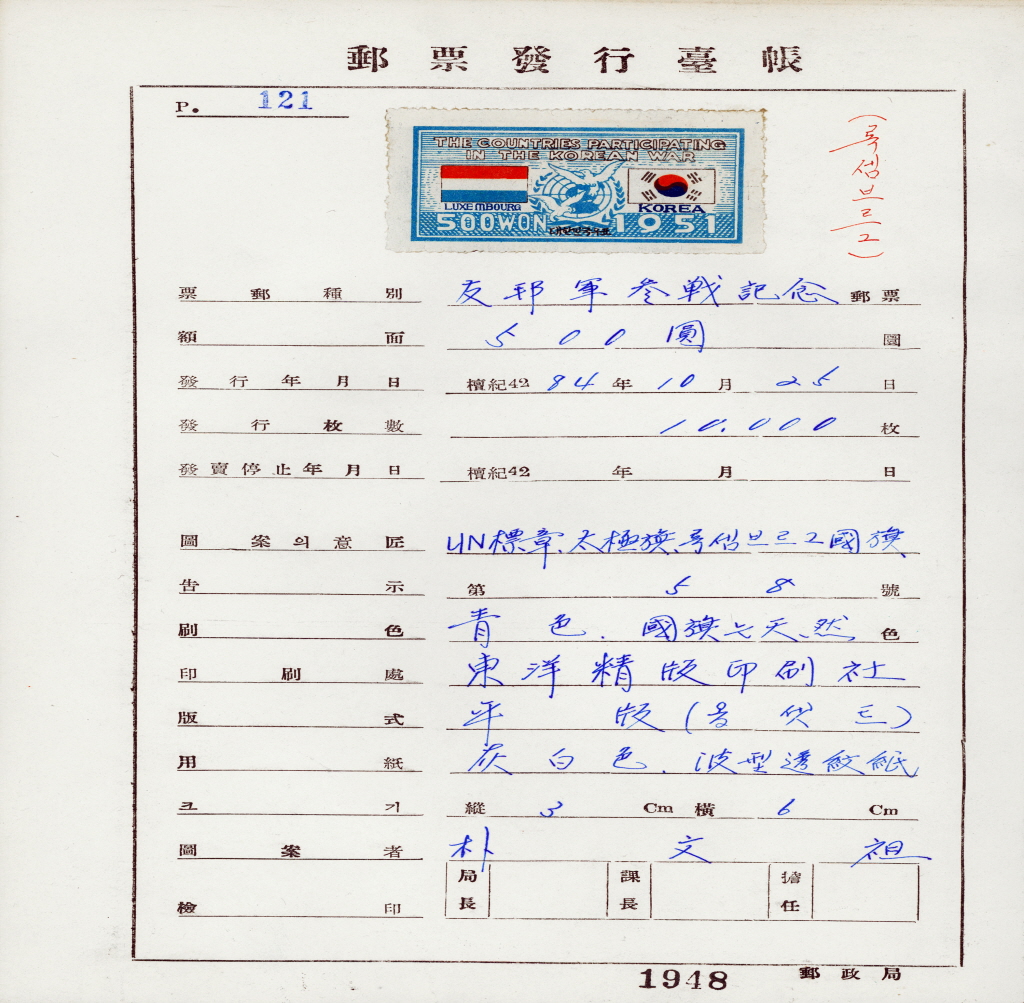 郵票發行臺帳
P. 121
THE COUNTRIES PARTICIPATING
IN THE KOREAN WAR
LUXEMBOURG KOREA
500WON 1951
(룩셈브르그)
票郵種別 友邦軍參戰記念 郵票
額面 500圓 圜
發行年月日 檀紀42 84年 10月 25日
發行枚數 10.000 枚
發賣停止年月日 檀紀42 年 月 日
圖案의意匠 UN標章、太極旗、룩셈브르그國旗、
告示 第 58 號
刷色 青色. 國旗는天然 色
印刷處 東洋精版印刷社
版式 平版(옵셋트)
用紙 灰白色. 波型透紋紙
크기 縱 3 Cm 橫 6 Cm
圖案者 朴文祖
檢印 局長 課長 擔任
1948 郵政局